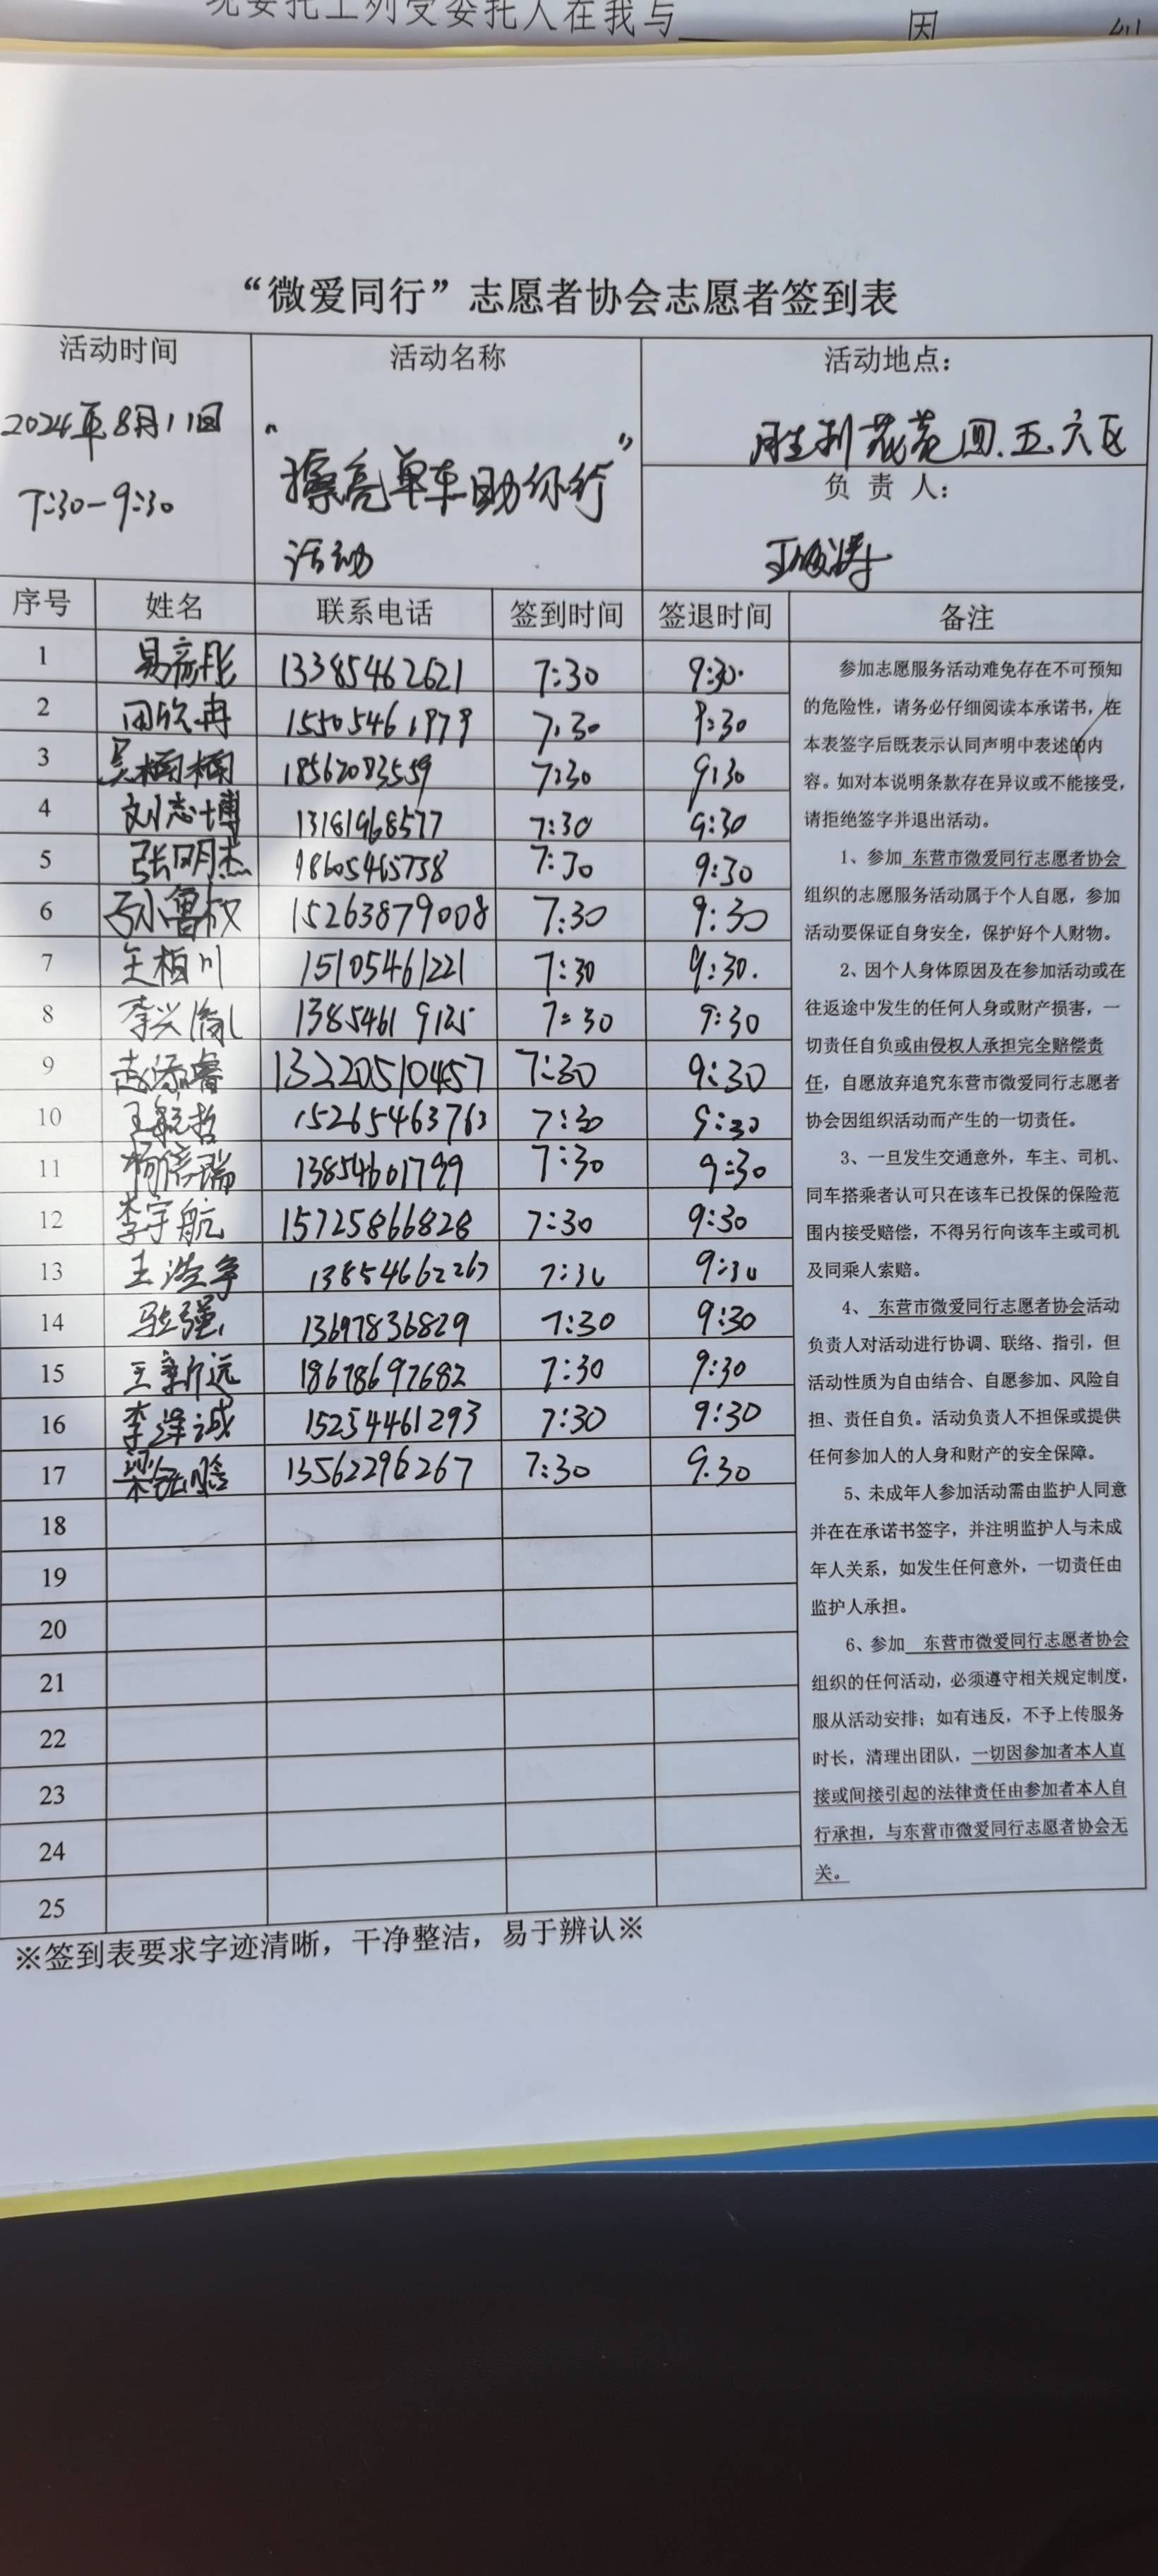 现委托上列受委托人在我与 因 纠
“微爱同行”志愿者协会志愿者签到表
活动时间 活动名称 活动地点：
2024年8月11日 “擦亮单车助你行” 胜利花苑四、五、六区
7:30-9:30 活动 负责人：
序号 姓名 联系电话 签到时间 签退时间 备注
1 13385462621 7:30 9:30
2 15505461979 7:30 9:30
3 吴楠楠 18562083559 7:30 9:30
4 刘志博 13181968577 7:30 9:30
5 张明杰 18605465738 7:30 9:30
6 孙鲁放 15263879008 7:30 9:30
7 王柏川 15105461221 7:30 9:30
8 李兴 13854619125 7:30 9:30
9 赵添睿 13220510457 7:30 9:30
10 王毓哲 15265463763 7:30 9:30
11 杨倍瑞 13854601799 7:30 9:30
12 李宇航 15725866828 7:30 9:30
13 王浩宇 13854662267 7:30 9:30
14 强 13697836829 7:30 9:30
15 王新远 18678697682 7:30 9:30
16 李泽诚 15254461293 7:30 9:30
17 梁 13562296267 7:30 9:30
18
19
20
21
22
23
24
25
参加志愿服务活动难免存在不可预知
的危险性，请务必仔细阅读本承诺书，在
本表签字后既表示认同声明中表述的内
容。如对本说明条款存在异议或不能接受，
请拒绝签字并退出活动。
1、参加 东营市微爱同行志愿者协会
组织的志愿服务活动属于个人自愿，参加
活动要保证自身安全，保护好个人财物。
2、因个人身体原因及在参加活动或在
往返途中发生的任何人身或财产损害，一
切责任自负或由侵权人承担完全赔偿责
任，自愿放弃追究东营市微爱同行志愿者
协会因组织活动而产生的一切责任。
3、一旦发生交通意外，车主、司机、
同车搭乘者认可只在该车已投保的保险范
围内接受赔偿，不得另行向该车主或司机
及同乘人索赔。
4、 东营市微爱同行志愿者协会活动
负责人对活动进行协调、联络、指引，但
活动性质为自由结合、自愿参加、风险自
担、责任自负。活动负责人不担保或提供
任何参加人的人身和财产的安全保障。
5、未成年人参加活动需由监护人同意
并在在承诺书签字，并注明监护人与未成
年人关系，如发生任何意外，一切责任由
监护人承担。
6、参加 东营市微爱同行志愿者协会
组织的任何活动，必须遵守相关规定制度，
服从活动安排；如有违反，不予上传服务
时长，清理出团队，一切因参加者本人直
接或间接引起的法律责任由参加者本人自
行承担，与东营市微爱同行志愿者协会无
关。
※签到表要求字迹清晰，干净整洁，易于辨认※